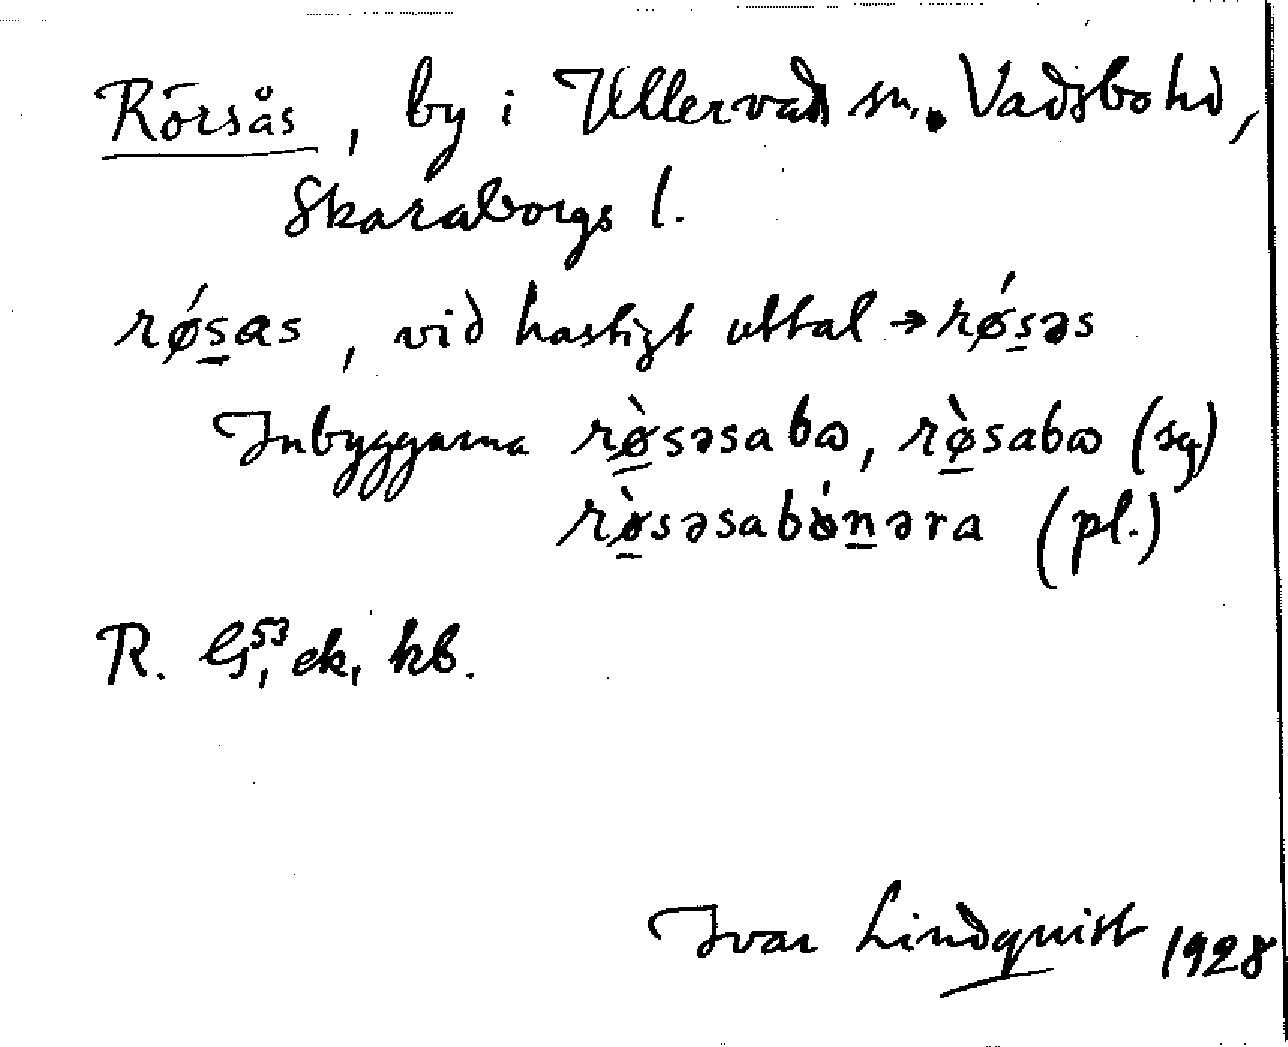 Rörsås, by i Ullervad sn. Vadsbo hd,
Skaraborgs l.
rǿs̲as, vid hastigt uttal → rǿs̲əs
Inbyggarna rø̲̀səsabɷ, rø̲̀sabɷ (sg)
rø̲̀səsabǿn̲əra (pl.)
R. G53, ek, kb.
Ivar Lindquist 1928